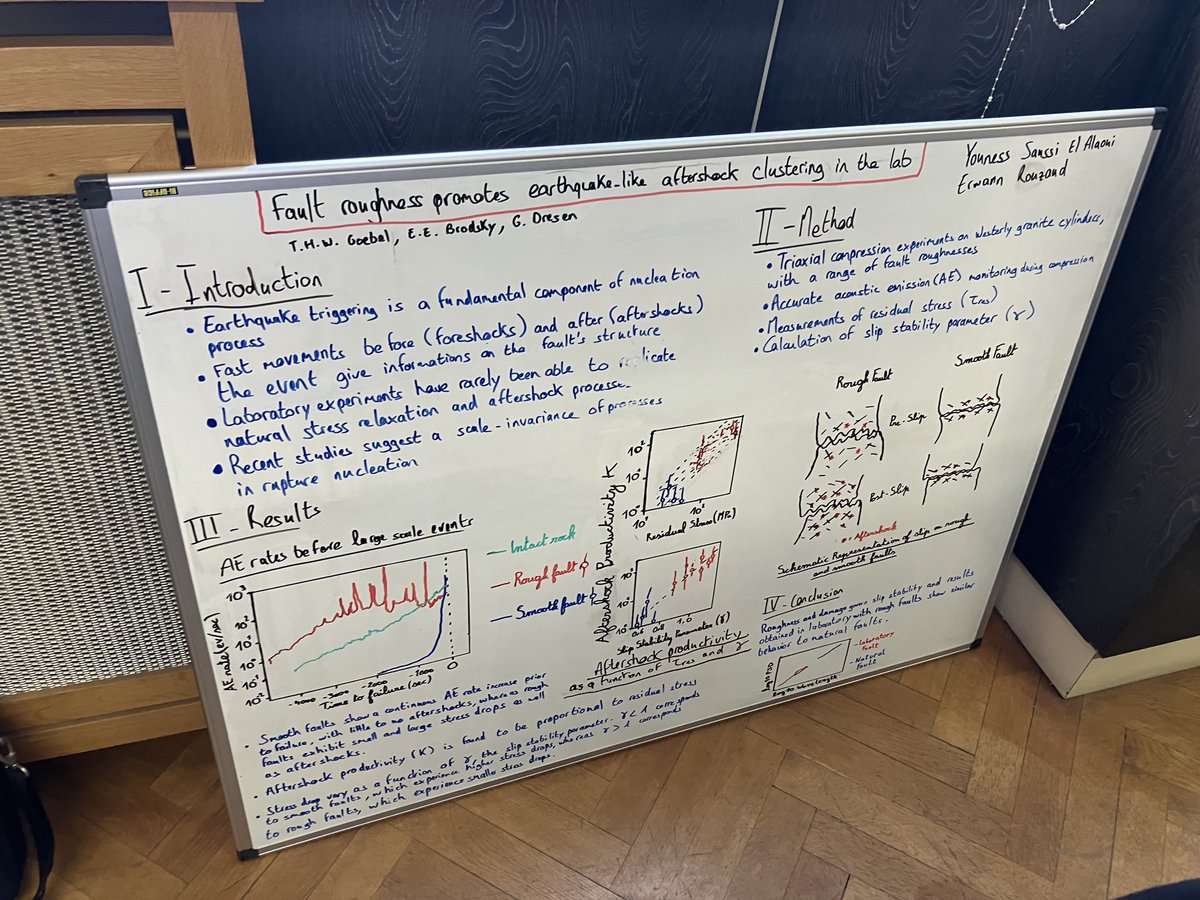 Fault roughness promotes earthquake-like aftershock clustering in the lab
T.H.W. Goebel, E.E. Brodsky, G. Dresen
Youness Sanssi El Alaoui
Erwann Rouzaud
I - Introduction
• Earthquake triggering is a fundamental component of nucleation
process
• Fast movements before (foreshocks) and after (aftershocks)
the event give informations on the fault's structure
• Laboratory experiments have rarely been able to replicate
natural stress relaxation and aftershock
• Recent studies suggest a scale-invariance of processes
in rupture nucleation
II - Method
• Triaxial compression experiments on Westerly granite cylinders,
with a range of fault roughnesses
• Accurate acoustic emission (AE) monitoring during compression
• Measurements of residual stress (τres)
• Calculation of slip stability parameter (r)
Rough Fault
Smooth Fault
Pre-Slip
Post-Slip
Aftershock
Schematic Representation of slip on rough
and smooth faults
III - Results
AE rates before large scale events
AE rate (ev/sec)
-4000 -3000 -2000 -1000 0
Time to failure (sec)
Intact rock
Rough fault
Smooth fault
Aftershock Productivity K
Residual Stress (MPa)
0.6 0.8 1.0
Slip Stability Parameter (r)
Aftershock productivity
as a function of τres and r
• Smooth faults show a continuous AE rate increase prior
to failure, with little to no aftershocks, whereas rough
faults exhibit small and large stress drops as well
as aftershocks.
• Aftershock productivity (K) is found to be proportional to residual stress
• Stress drop vary as a function of r, the slip stability parameter. r < 1 corresponds
to smooth faults, which experience higher stress drops, whereas r > 1 corresponds
to rough faults, which experience smaller stress drops.
IV - Conclusion
Roughness and damage govern slip stability and results
obtained in laboratory with rough faults show similar
behavior to natural faults.
- Laboratory
fault
- Natural
fault
Wavelength